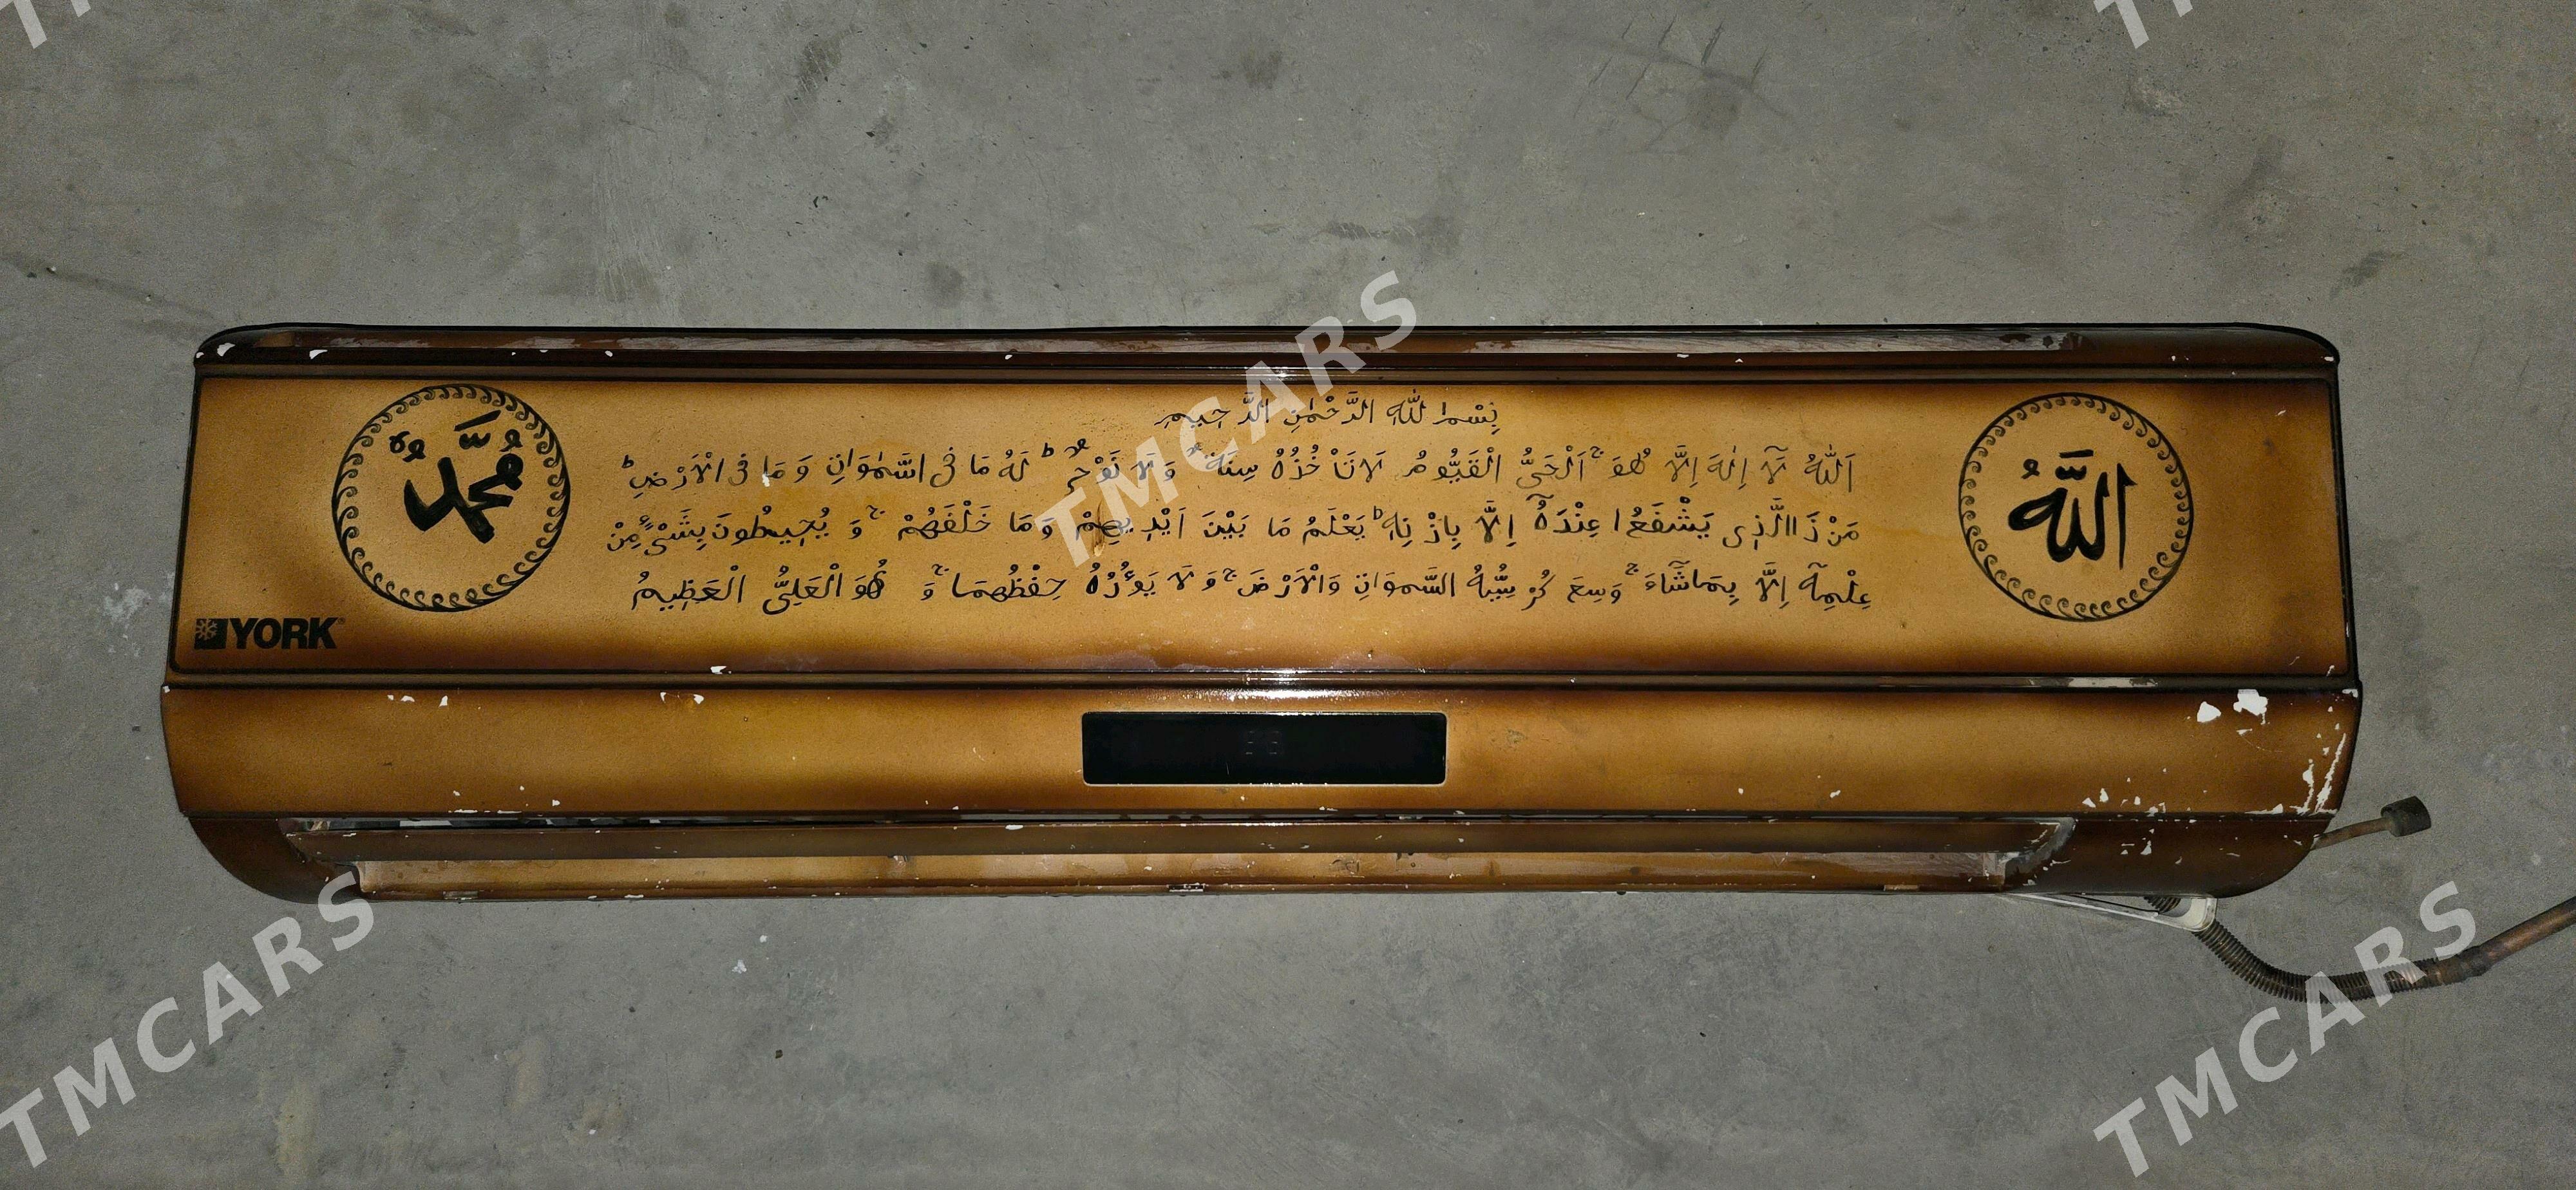 بِسْمِ اللّٰهِ الرَّحْمٰنِ الرَّحِيمِ
اَللّٰهُ لَآ اِلٰهَ اِلَّا هُوَ ۚ اَلْحَىُّ الْقَيُّومُ لَاتَاْ خُذُهُ سِنَةٌ وَلَا نَوْمٌ ؕ لَهُ مَا فِى السَّمٰوَاتِ وَ مَا فِى الْاَرْضِ ؕ
مَنْ ذَاالَّذِى يَشْفَعُ ا عِنْدَهُٓ اِلَّا بِاِذْ نِهِ ؕ يَعْلَمُ مَا بَيْنَ اَيْدِ يهِمْ وَ مَا خَلْفَهُمْ ۚ وَ يُحِيطُونَ بِشَىْءٍ مِنْ
عِلْمِهِٓ اِلَّا بِمَاشَٓاءَ ۚ وَسِعَ كُرْ سِيُّهُ السَّموَاتِ وَالْاَرْضَ ۚ وَ لَا يَؤُدُهُ حِفْظُهُمَا ۚ وَ هُوَ الْعَلِىُّ الْعَظِيمُ
اللّٰهُ
مُحَمَّدٌ
YORK
TMCARS
TMCARS
TMCARS